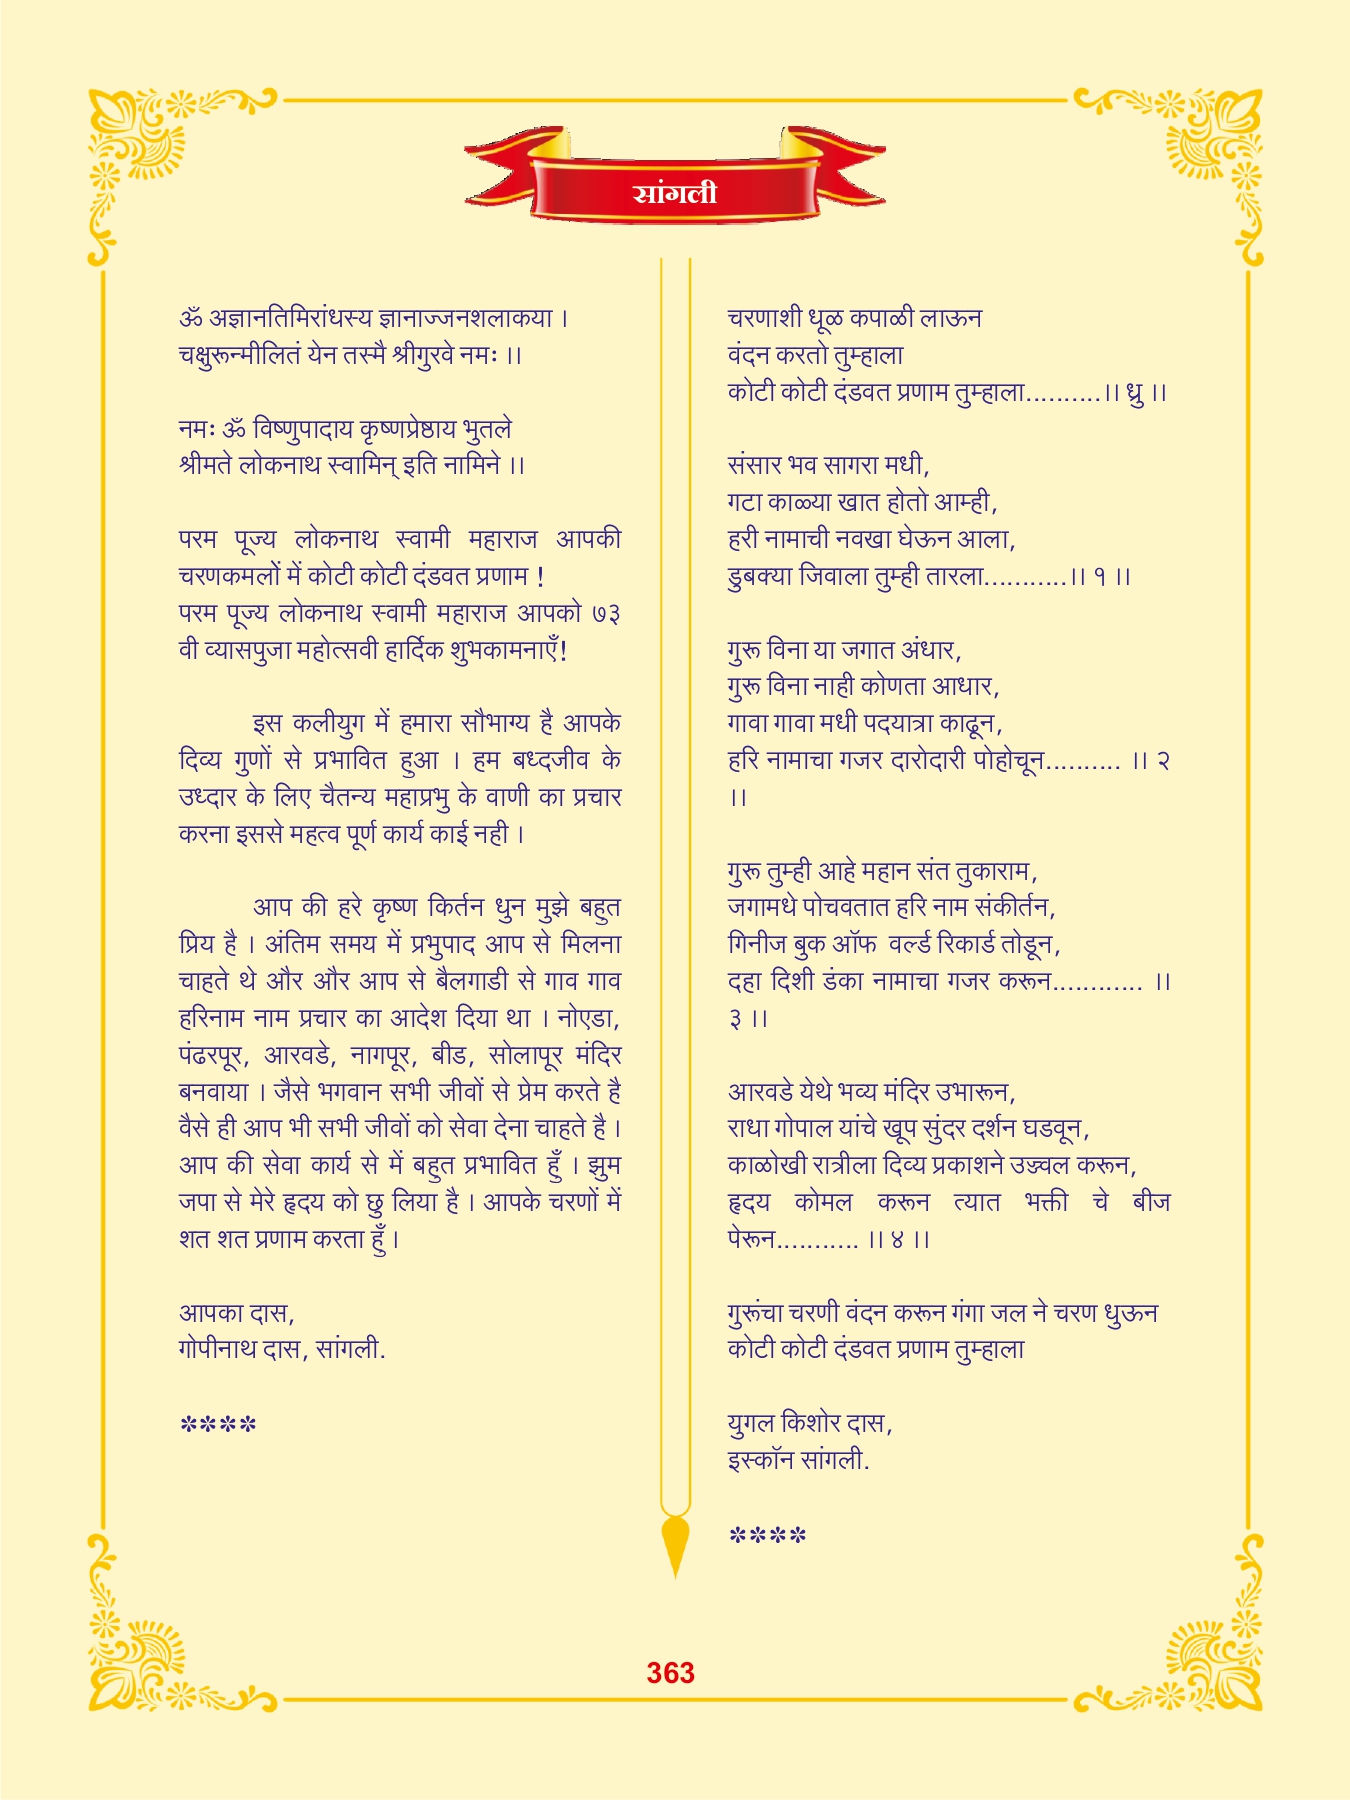 सांगली
ॐ अज्ञानतिमिरांधस्य ज्ञानाज्जनशलाकया ।
चक्षुरून्मीलितं येन तस्मै श्रीगुरवे नमः ।।
नमः ॐ विष्णुपादाय कृष्णप्रेष्ठाय भुतले
श्रीमते लोकनाथ स्वामिन् इति नामिने ।।
परम पूज्य लोकनाथ स्वामी महाराज आपकी
चरणकमलों में कोटी कोटी दंडवत प्रणाम !
परम पूज्य लोकनाथ स्वामी महाराज आपको ७३
वी व्यासपुजा महोत्सवी हार्दिक शुभकामनाएँ!
इस कलीयुग में हमारा सौभाग्य है आपके
दिव्य गुणों से प्रभावित हुआ । हम बध्दजीव के
उध्दार के लिए चैतन्य महाप्रभु के वाणी का प्रचार
करना इससे महत्व पूर्ण कार्य काई नही ।
आप की हरे कृष्ण किर्तन धुन मुझे बहुत
प्रिय है । अंतिम समय में प्रभुपाद आप से मिलना
चाहते थे और और आप से बैलगाडी से गाव गाव
हरिनाम नाम प्रचार का आदेश दिया था । नोएडा,
पंढरपूर, आरवडे, नागपूर, बीड, सोलापूर मंदिर
बनवाया । जैसे भगवान सभी जीवों से प्रेम करते है
वैसे ही आप भी सभी जीवों को सेवा देना चाहते है ।
आप की सेवा कार्य से में बहुत प्रभावित हुँ । झुम
जपा से मेरे हृदय को छु लिया है । आपके चरणों में
शत शत प्रणाम करता हुँ ।
आपका दास,
गोपीनाथ दास, सांगली.
****
चरणाशी धूळ कपाळी लाऊन
वंदन करतो तुम्हाला
कोटी कोटी दंडवत प्रणाम तुम्हाला..........।। ध्रु ।।
संसार भव सागरा मधी,
गटा काळ्या खात होतो आम्ही,
हरी नामाची नवखा घेऊन आला,
डुबक्या जिवाला तुम्ही तारला...........।। १ ।।
गुरू विना या जगात अंधार,
गुरू विना नाही कोणता आधार,
गावा गावा मधी पदयात्रा काढून,
हरि नामाचा गजर दारोदारी पोहोचून.......... ।। २
।।
गुरू तुम्ही आहे महान संत तुकाराम,
जगामधे पोचवतात हरि नाम संकीर्तन,
गिनीज बुक ऑफ  वर्ल्ड रिकार्ड तोडून,
दहा दिशी डंका नामाचा गजर करून............ ।।
३ ।।
आरवडे येथे भव्य मंदिर उभारून,
राधा गोपाल यांचे खूप सुंदर दर्शन घडवून,
काळोखी रात्रीला दिव्य प्रकाशने उज्ज्वल करून,
हृदय कोमल करून त्यात भक्ती चे बीज
पेरून........... ।। ४ ।।
गुरूंचा चरणी वंदन करून गंगा जल ने चरण धुऊन
कोटी कोटी दंडवत प्रणाम तुम्हाला
युगल किशोर दास,
इस्कॉन सांगली.
****
363